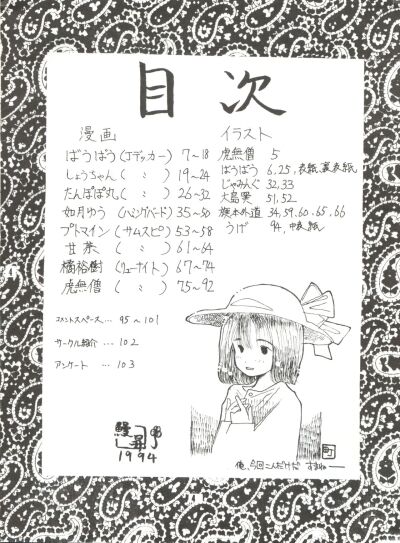 目次
漫画
ばうばう(Jデッカー) 7~18
しょうちゃん( 〃 ) 19~24
たんぽぽ丸( 〃 ) 26~32
如月ゆう(ハミングバード) 35~50
プトマイン(サムスピ) 53~58
甘茶( 〃 ) 61~64
橘裕樹(リューナイト) 67~74
虎無僧( 〃 ) 75~92
コメントスペース… 95~101
サークル紹介 … 102
アンケート … 103
イラスト
虎無僧 5
ばうばう 6,25,表紙,裏表紙
じゃみんぐ 32,33
大島
51,52
旗本外道 34,59,60,65,66
うげ 94,中表紙
1994
俺、今回こんだけだ すまねー